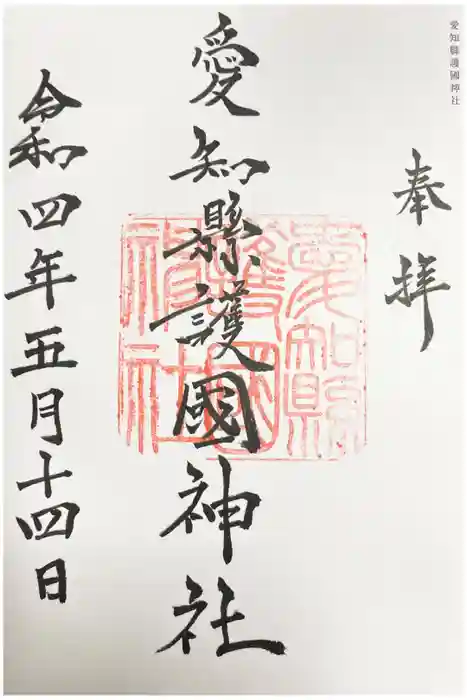 愛知縣護國神社
奉拝
愛知縣護國神社
愛知縣護國神社
令和四年五月十四日